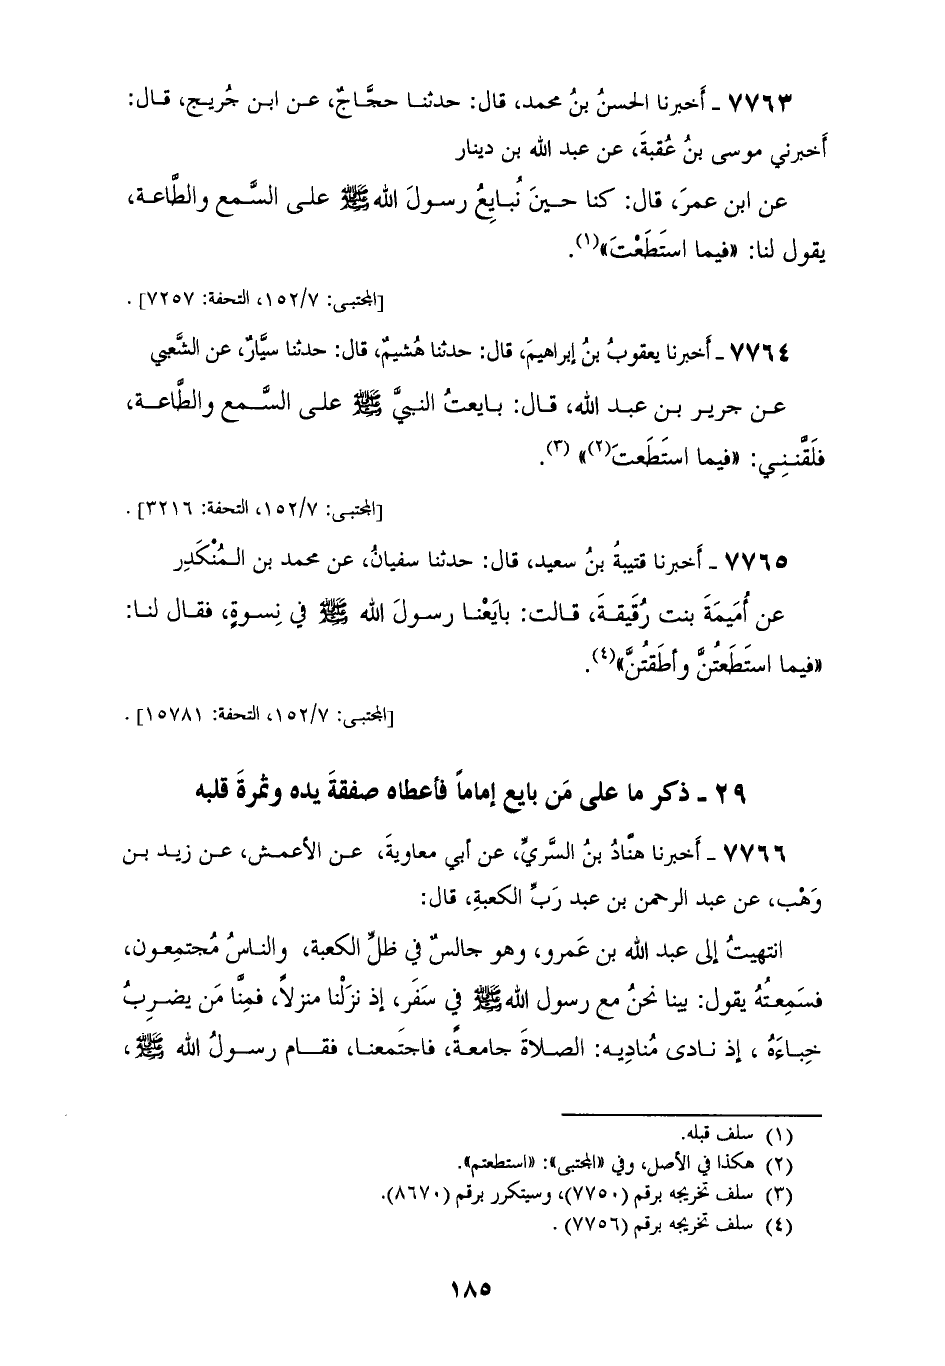 ٧٧٦٣ ـ أَخبرنا الحسنُ بنُ محمد، قال: حدثنا حجَّاجٌ، عن ابن جُريج، قال:
أَخبرني موسى بنُ عُقبةَ، عن عبد الله بن دينار
عن ابن عمرَ، قال: كنا حينَ نُبايِعُ رسولَ الله ﷺ على السَّمع والطَّاعة،
يقول لنا: «فيما استَطَعْتَ»(١).
[المجتبى: ١٥٢/٧، التحفة: ٧٢٥٧] .
٧٧٦٤ ـ أَخبرنا يعقوبُ بنُ إبراهيمَ، قال: حدثنا هُشيمٌ، قال: حدثنا سيَّارٌ، عن الشَّعبي
عن جرير بن عبد الله، قال: بايعتُ النبيَّ ﷺ على السَّمع والطَّاعة،
فلَقَّنني: «فيما استَطَعتَ(٢)» (٣).
[المجتبى: ١٥٢/٧، التحفة: ٣٢١٦] .
٧٧٦٥ ـ أَخبرنا قتيبةُ بنُ سعيد، قال: حدثنا سفيانُ، عن محمد بن المُنْكَدِر
عن أُمَيمَةَ بنت رُقَيقةَ، قالت: بايَعْنا رسولَ الله ﷺ في نِسوةٍ، فقال لنا:
«فيما استَطَعتُنَّ وأطَقتُنَّ»(٤).
[المجتبى: ١٥٢/٧، التحفة: ١٥٧٨١] .
٢٩ ـ ذكر ما على مَن بايع إماماً فأعطاه صفقةَ يده وثمرةَ قلبه
٧٧٦٦ ـ أَخبرنا هنَّادُ بنُ السَّريِّ، عن أبي معاويةَ، عن الأعمش، عن زيد بن
وَهْب، عن عبد الرحمن بن عبد رَبِّ الكعبةِ، قال:
انتهيتُ إلى عبد الله بن عَمرو، وهو جالسٌ في ظلِّ الكعبة، والناسُ مُجتمِعون،
فسَمِعتُهُ يقول: بينا نحنُ مع رسول الله ﷺ في سَفَر، إذ نزَلْنا منزلاً، فمِنَّا مَن يضرِبُ
خِباءَهُ ، إذ نادى مُنادِيه: الصلاةَ جامعةً، فاجتَمعنا، فقام رسولُ الله ﷺ ،
(١) سلف قبله.
(٢) هكذا في الأصل، وفي «المجتبى»: «استطعتم».
(٣) سلف تخريجه برقم (٧٧٥٠)، وسيتكرر برقم (٨٦٧٠).
(٤) سلف تخريجه برقم (٧٧٥٦) .
١٨٥